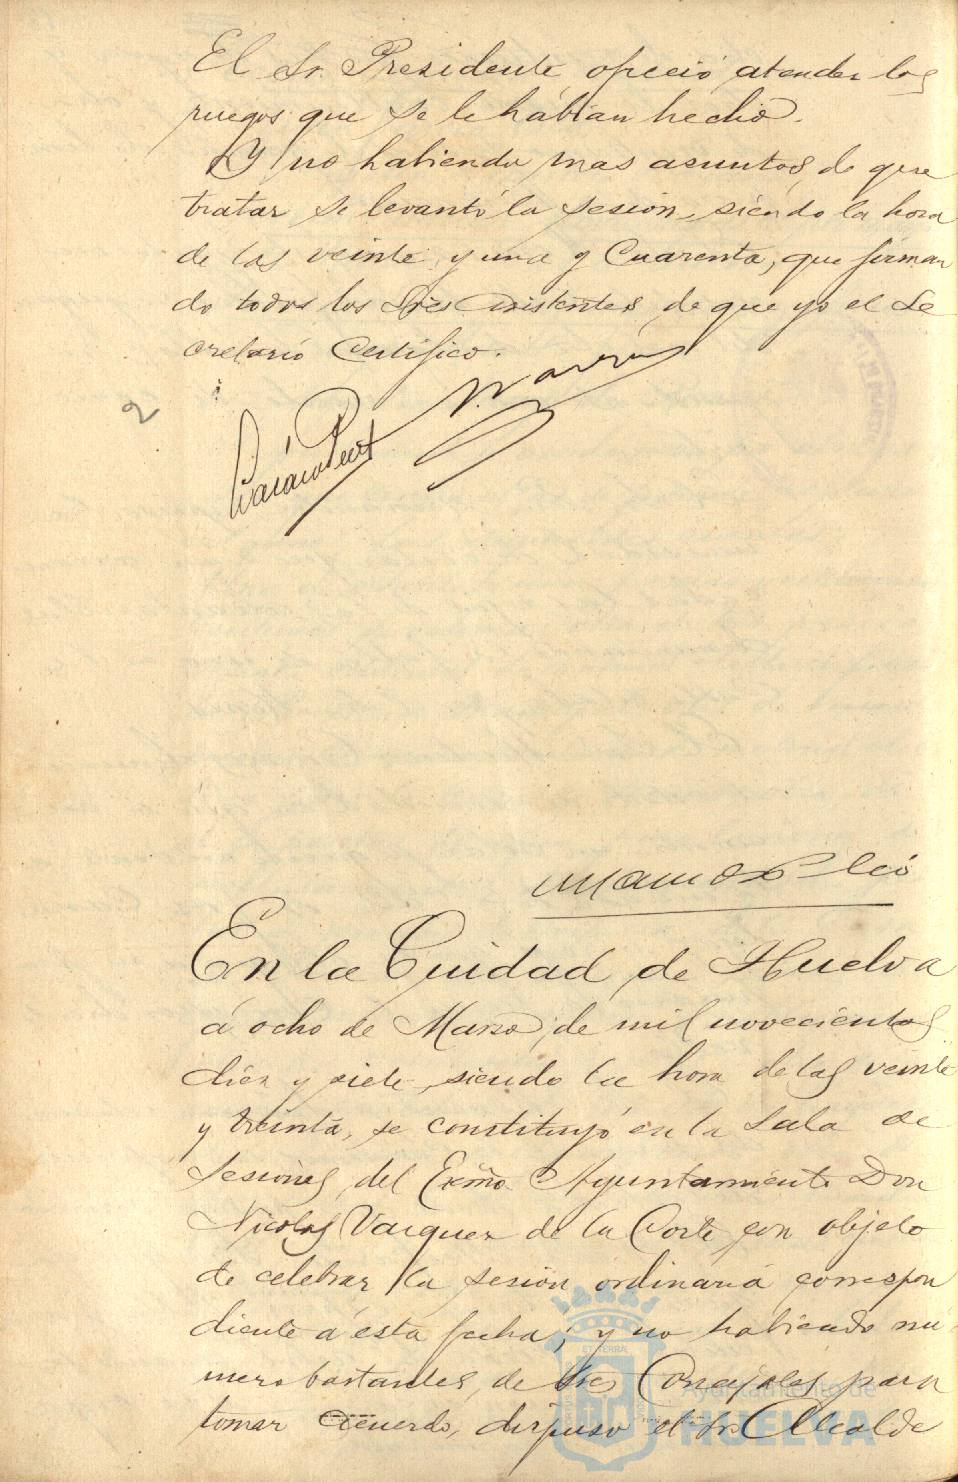 El Sr. Presidente ofreció atender los
ruegos que se le habían hecho.
Y no habiendo mas asuntos de que
tratar se levantó la sesión, siendo la hora
de las veinte y una y Cuarenta, que firman
do todos los Sres Asistentes, de que yo el Se
cretario Certifico.
2
En la Ciudad de Huelva
á ocho de Marzo, de mil novecientos
diez y siete, siendo la hora de las veinte
y treinta, se constituyó en la Sala de
Sesiones, del Exmo Ayuntamiento Don
Nicolas Vazquez de la Corte, con objeto
de celebrar la sesión ordinaria correspon
diente á esta fecha, y no habiendo nú
mero bastantes, de Sres Concejales para
tomar acuerdo, dispuso el Sr Alcalde
Ayuntamiento de
HUELVA